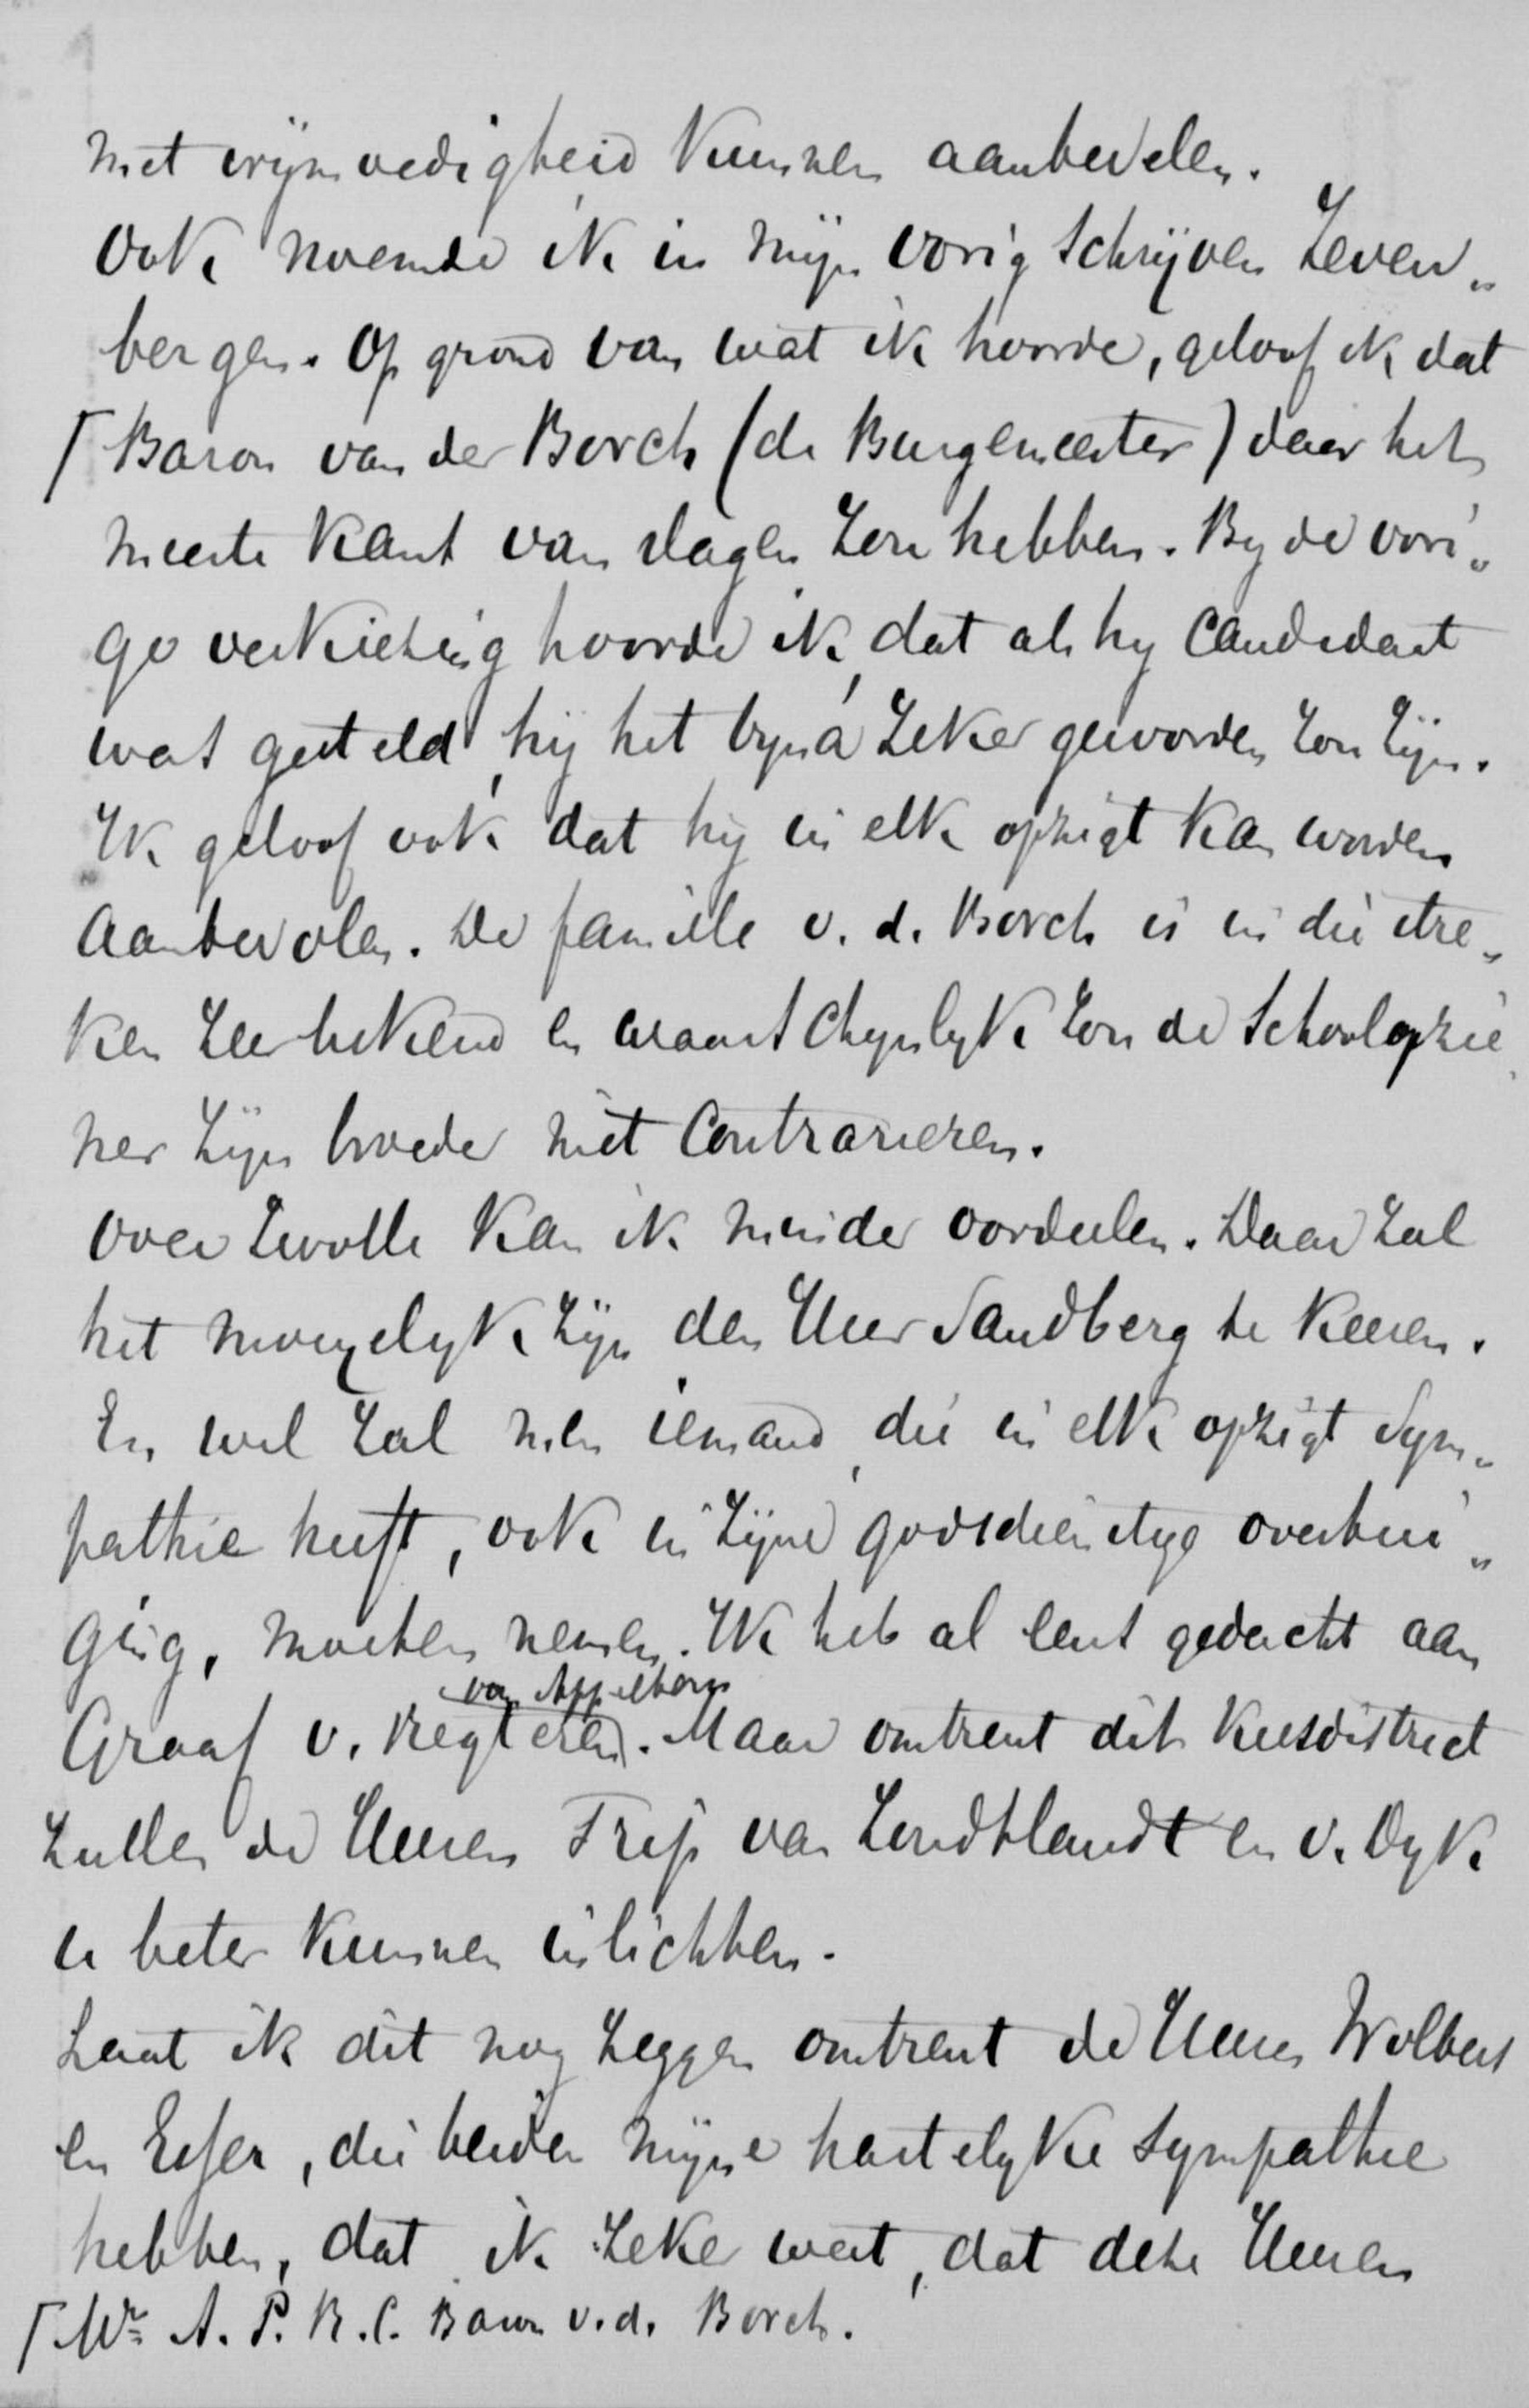 met vrijmoedigheid kunnen aanbevelen.
Ook noemde ik in mijn vorig schrijven Zeven„
bergen. Op grond van wat ik hoorde, geloof ik dat
⌈ Baron van der Borch (de Burgemeester) daar het
meeste kans van slagen zou hebben. By de vori„
ge verkiezing hoorde ik, dat als hy candidaat
was gesteld, hij het byna zeker geworden zou zijn.
Ik geloof ook dat hij in elk opzigt kan worden
aanbevolen. De familie v. d. Borch is in die stre„
ken zeer bekend en waarschynlyk zou de schoolopzie„
ner zijn broeder niet contrarieren.
Over Zwolle kan ik minder oordeelen. Daar zal
het moeyelyk zijn den Heer Sandberg te keeren.
En wel zal men iemand, die in elk opzigt sym„
pathie heeft, ook in zijne godsdienstige overtui„
ging, moeten nemen. Ik heb al eens gedacht aan
van Appeltern
Graaf v. Regteren. Maar omtrent dit kiesdistrict
zullen de Heeren Trip van Zoudtlandt en v. Dyk
u beter kunnen inlichten.
Laat ik dit nog zeggen omtrent de Heeren Wolbers
en Esser, die beiden mijne hartelyke sympathie
hebben, dat ik zeker weet, dat deze Heeren
⌈ Mr A. P. R. C. Baron v. d. Borch.